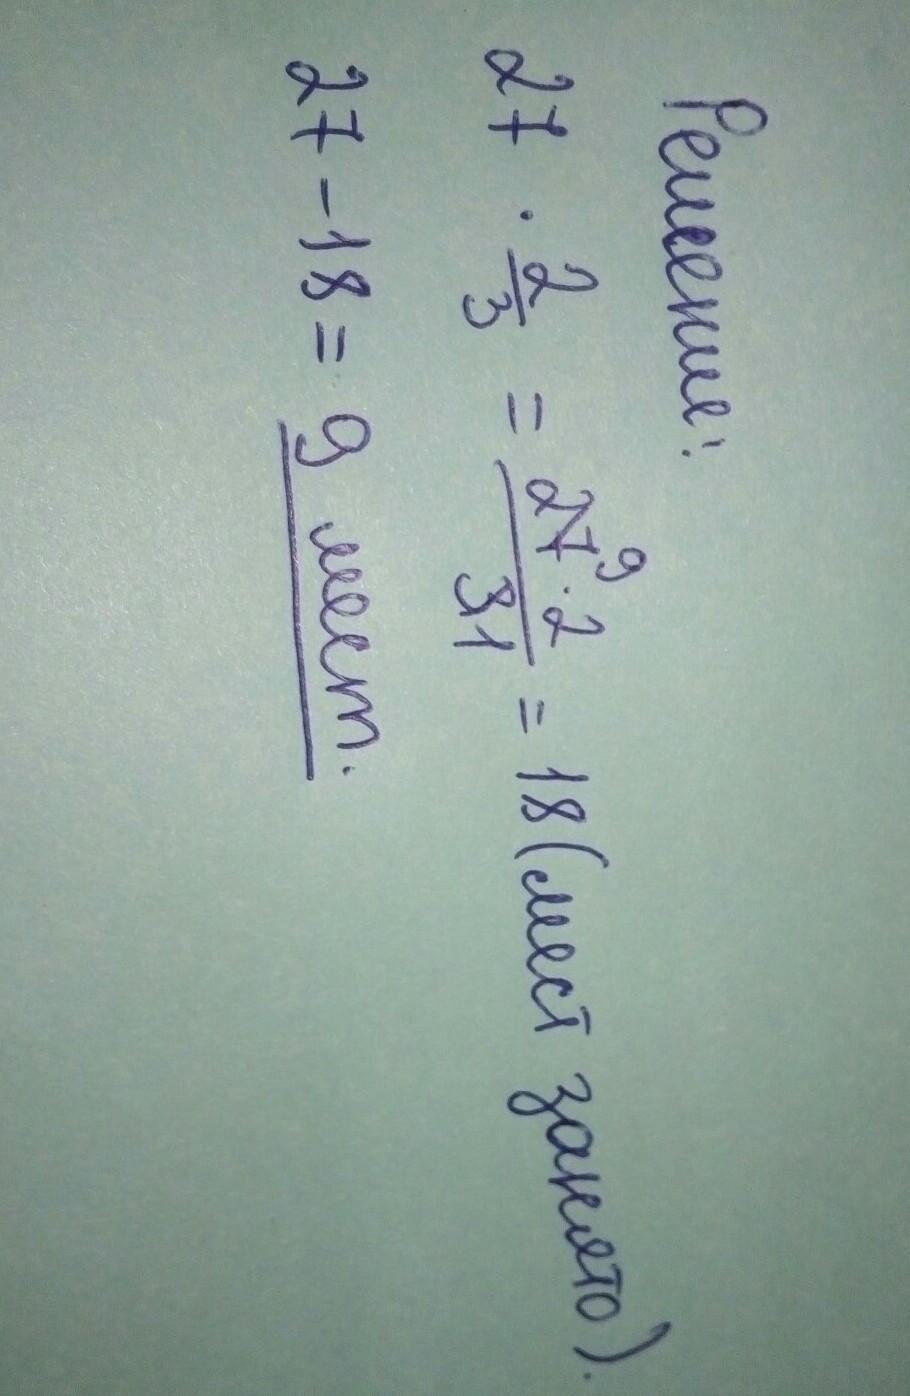 Решение:
27 · 2/3 = 27⁹ · 2 / 3₁ = 18 (мест занято).
27 - 18 = 9 мест.